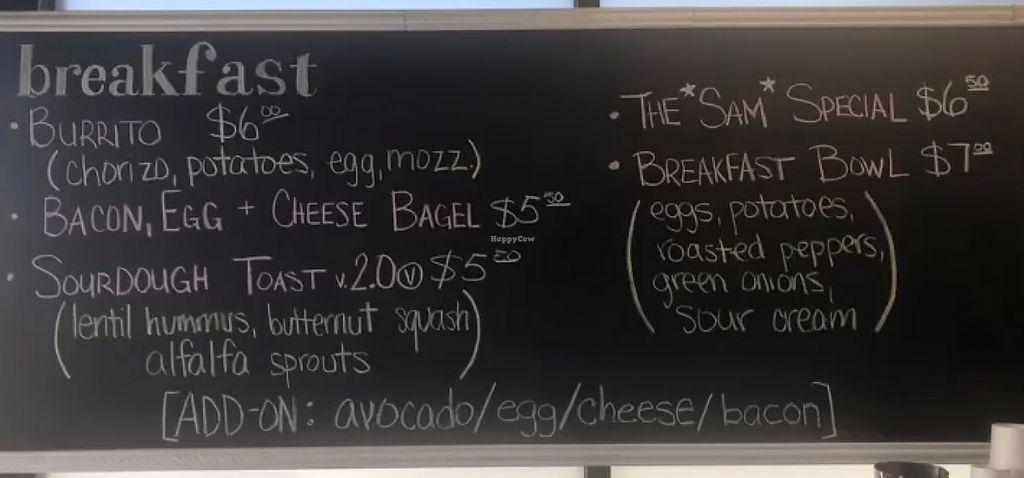 breakfast
• BURRITO $6.00
(chorizo, potatoes, egg, mozz.)
• BACON, EGG + CHEESE BAGEL $5.50
• SOURDOUGH TOAST v.2.0 Ⓥ $5.50
(lentil hummus, butternut squash
alfalfa sprouts)
• THE *SAM* SPECIAL $6.50
• BREAKFAST BOWL $7.00
(eggs, potatoes,
roasted peppers,
green onions,
sour cream)
[ADD-ON: avocado/egg/cheese/bacon]
HappyCow